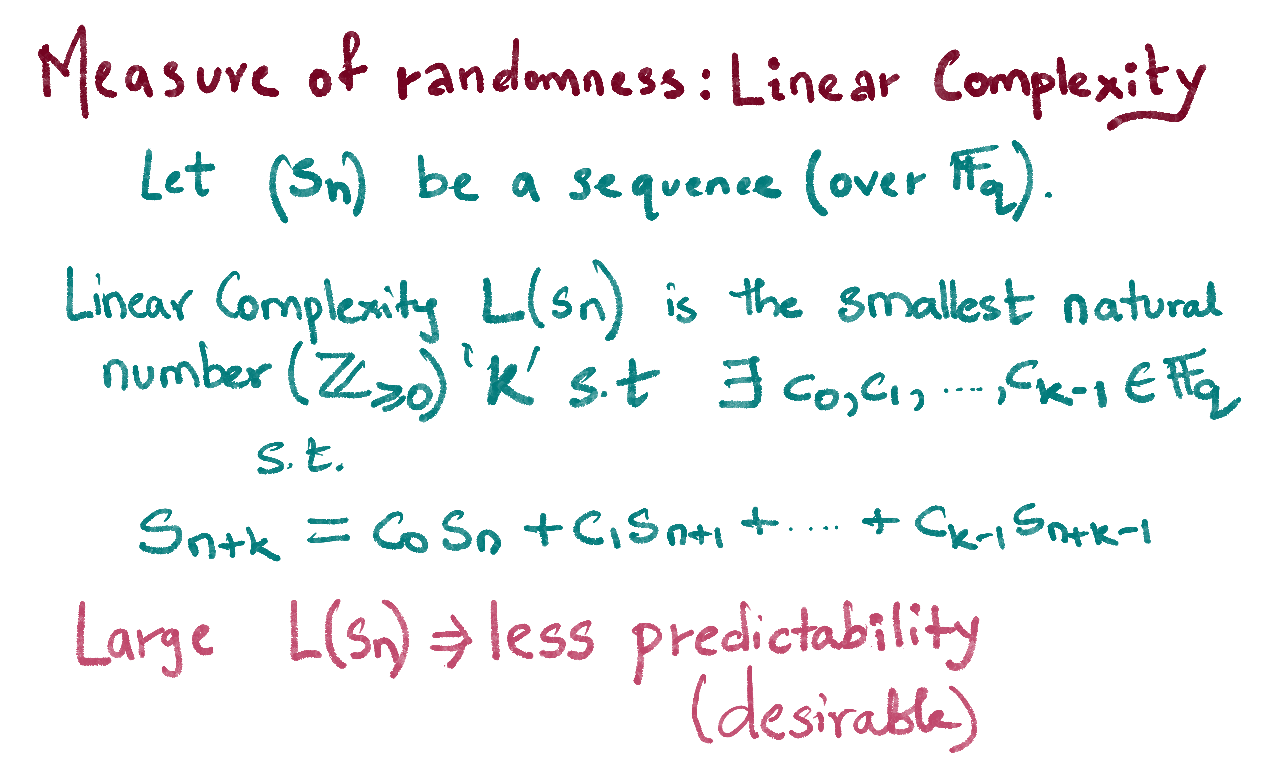 Measure of randomness: Linear Complexity
Let (Sn) be a sequence (over 𝔽q).
Linear Complexity L(Sn) is the smallest natural
number (ℤ≥0) 'k' s.t ∃ c₀, c₁, ...., cₖ₋₁ ∈ 𝔽q
s.t.
Sₙ₊ₖ = c₀Sₙ + c₁Sₙ₊₁ + ..... + cₖ₋₁Sₙ₊ₖ₋₁
Large L(Sn) ⇒ less predictability
(desirable)